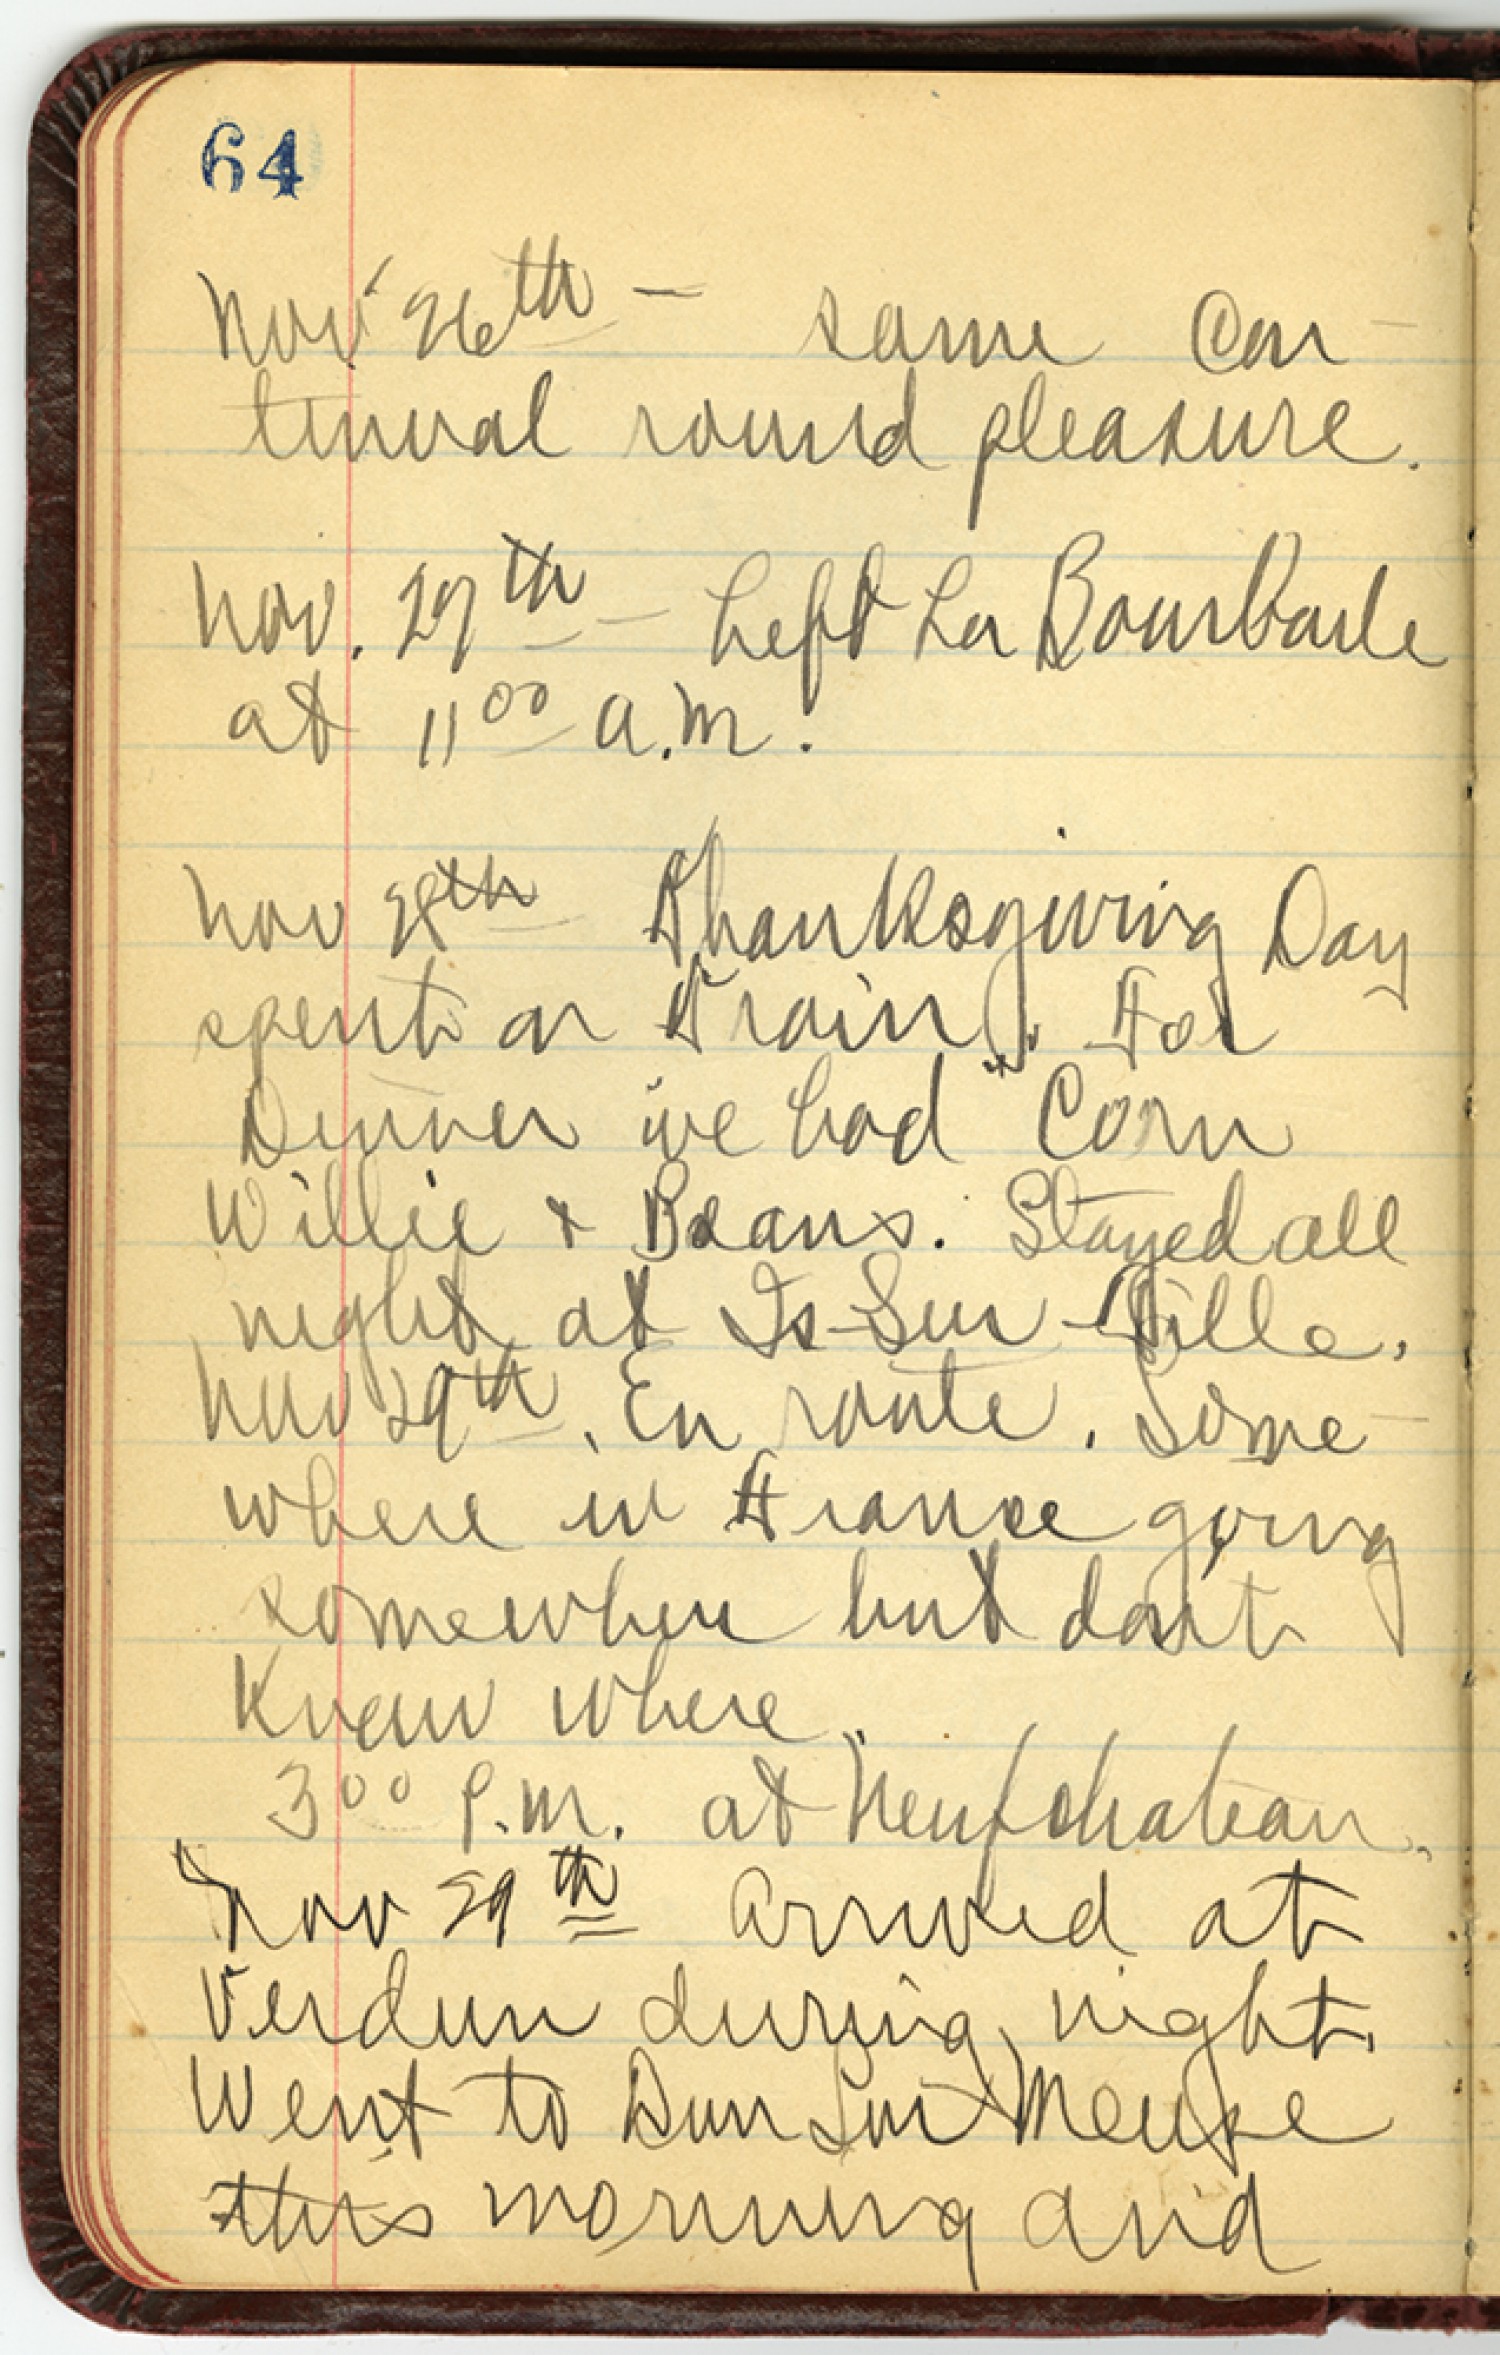 64
Nov. 26th – same Con-
tinual round pleasure.
Nov. 27th – Left La Bourboule
at 11 00 a.m.
Nov 28th Thanksgiving Day
spent on train. For
Dinner we had "Corn
Willie & Beans. Stayed all
night at Is-Sur-Tille.
Nov 29th. En route. Some-
where in France going
somewhere but don't
Know where.
3 00 P.M. at Neufchateau.
Nov 29th Arrived at
Verdun during night.
Went to Dun Sur Meuse
this morning and